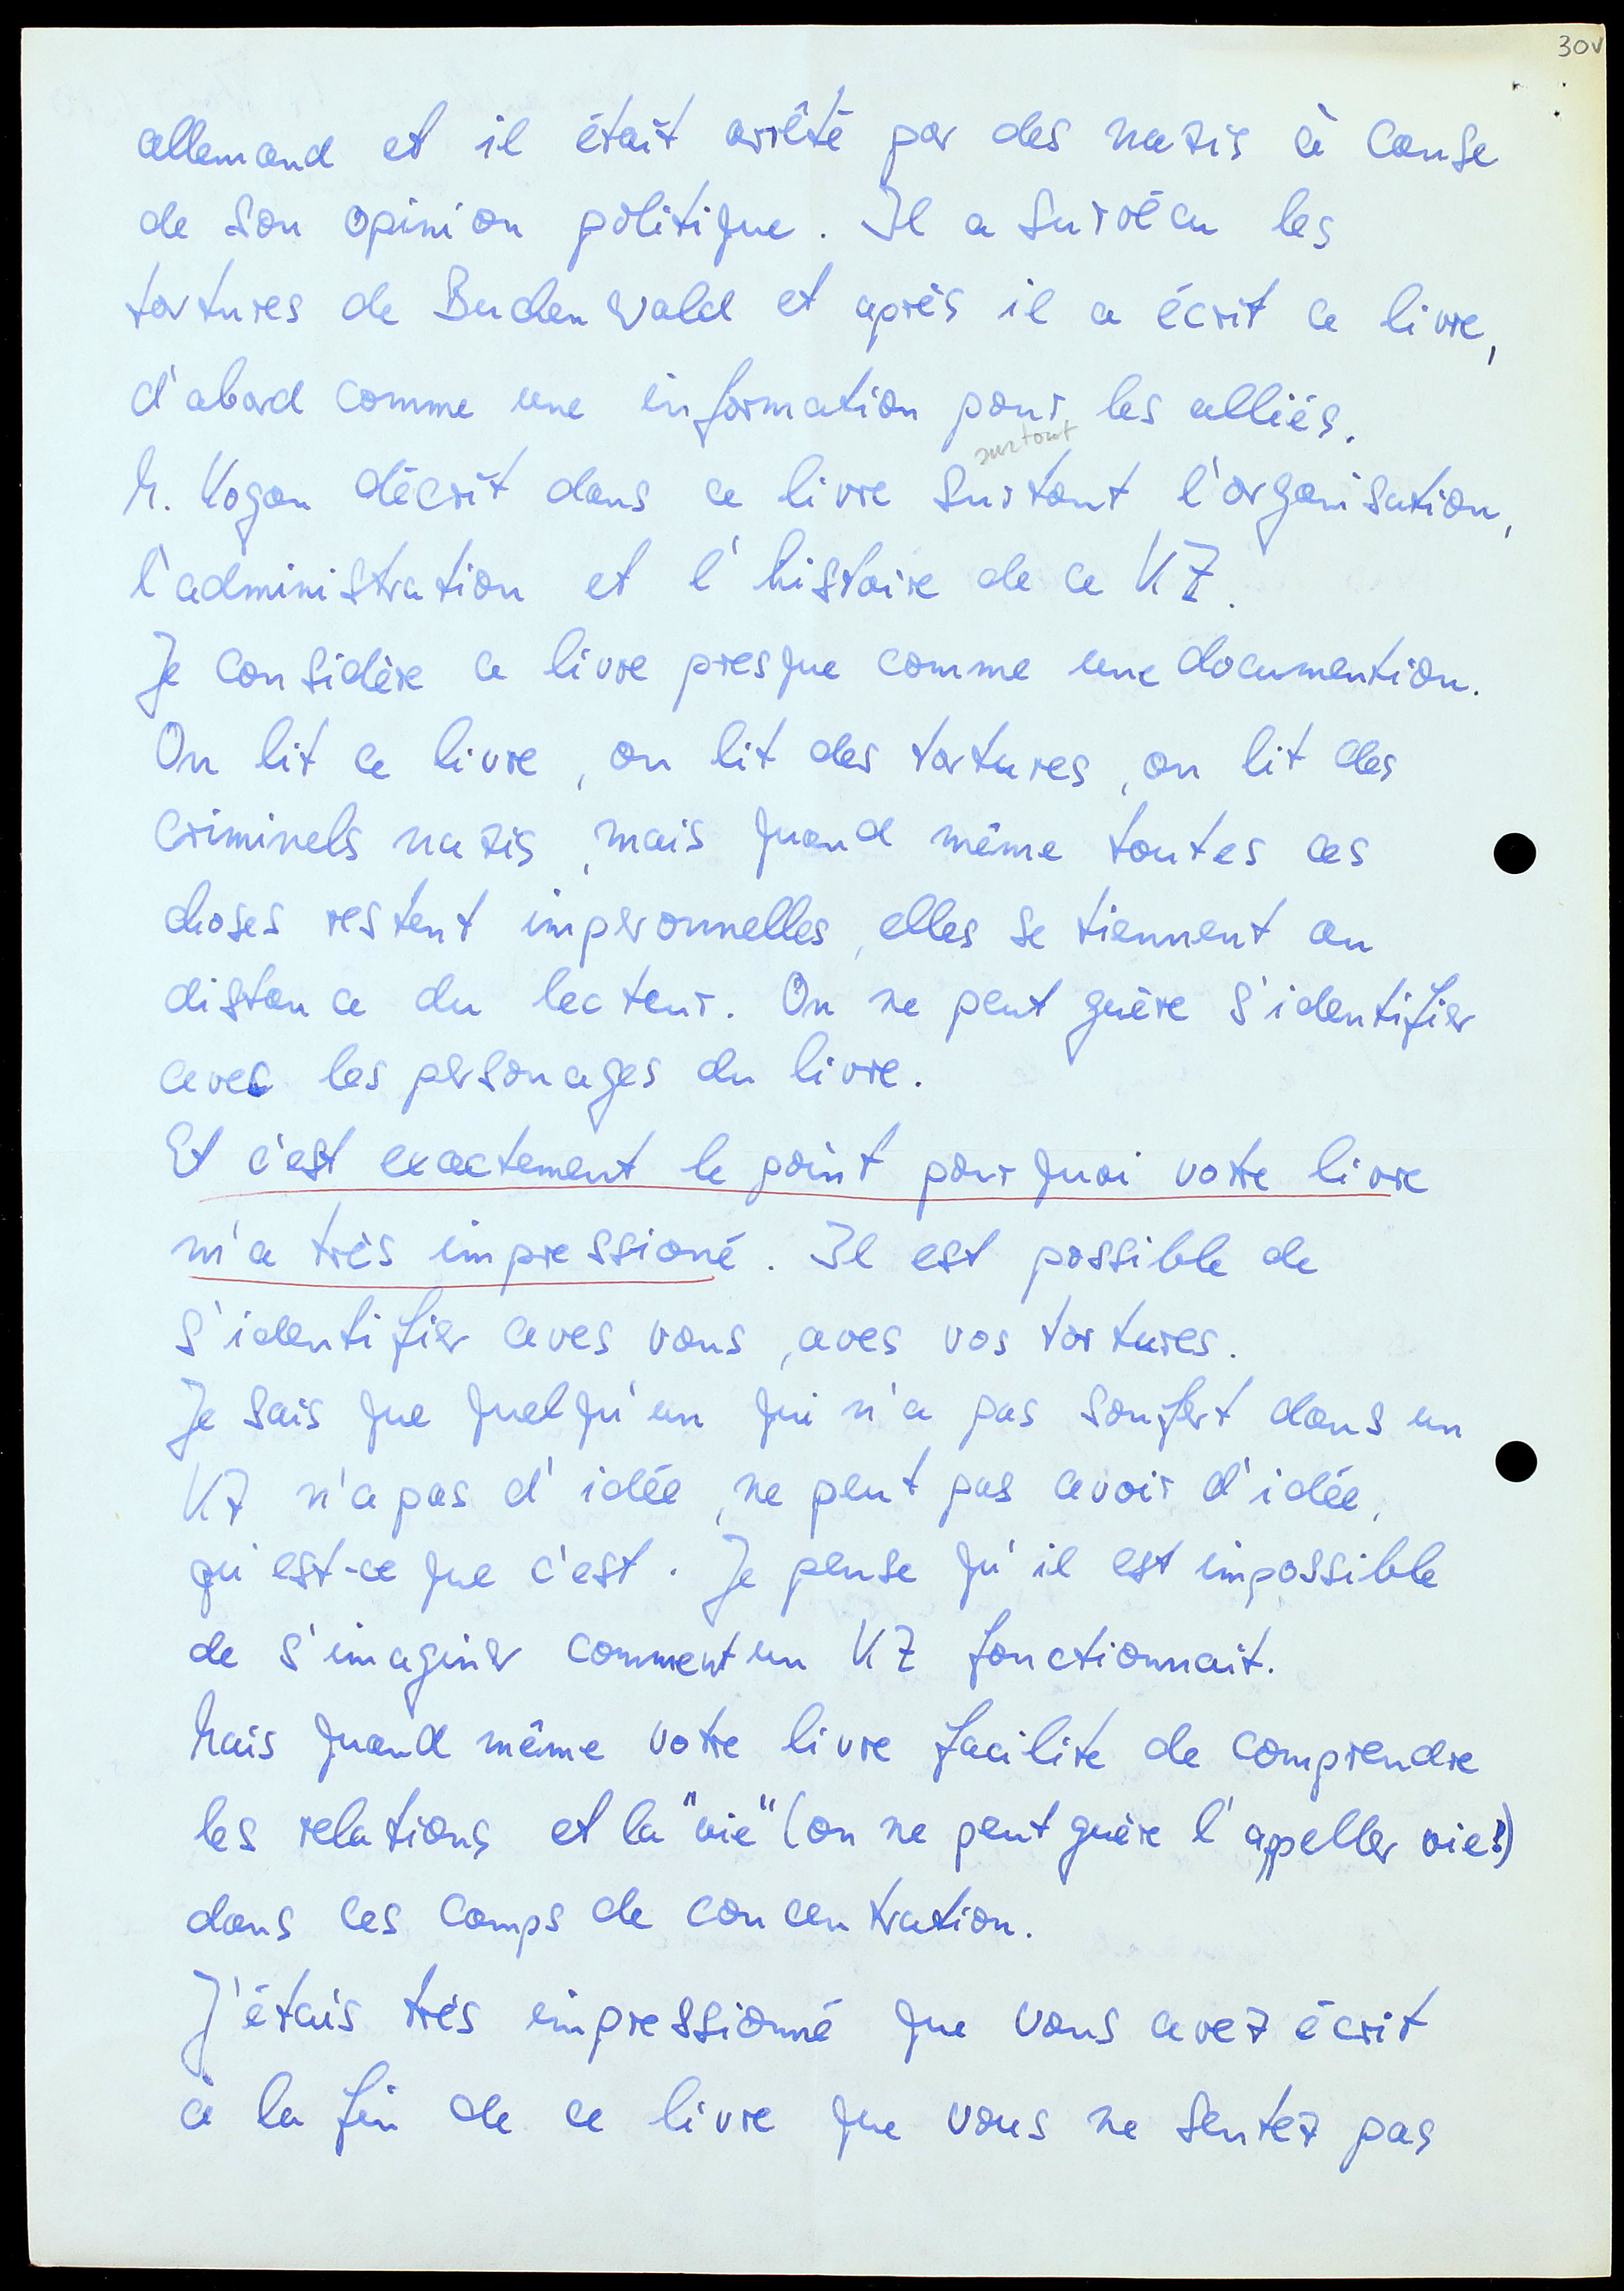 30v
allemand et il était arrêté par des nazis à cause
de son opinion politique. Il a survécu les
tortures de Buchenwald et après il a écrit ce livre,
d'abord comme une information pour les alliés.
surtout
M. Kogon décrit dans ce livre surtout l'organisation,
l'administration et l'histoire de ce KZ.
Je considère ce livre presque comme une documention.
On lit ce livre, on lit des tortures, on lit des
criminels nazis, mais quand même toutes ces
choses restent impersonnelles, elles se tiennent au
distance du lecteur. On ne peut guère s'identifier
avec les personages du livre.
Et c'est exactement le point pourquoi votre livre
m'a très impressioné. Il est possible de
s'identifier aves vous, aves vos tortures.
Je sais que quelqu'un qui n'a pas soufert dans un
KZ n'a pas d'idée, ne peut pas avoir d'idée,
qu'est-ce que c'est. Je pense qu'il est impossible
de s'imaginer comment un KZ fonctionnait.
Mais quand même votre livre facilite de comprendre
les relations et la "vie" (on ne peut guère l'appeller vie!)
dans ces camps de concentration.
J'étais très impressionné que vous avez écrit
à la fin de ce livre que vous ne sentez pas